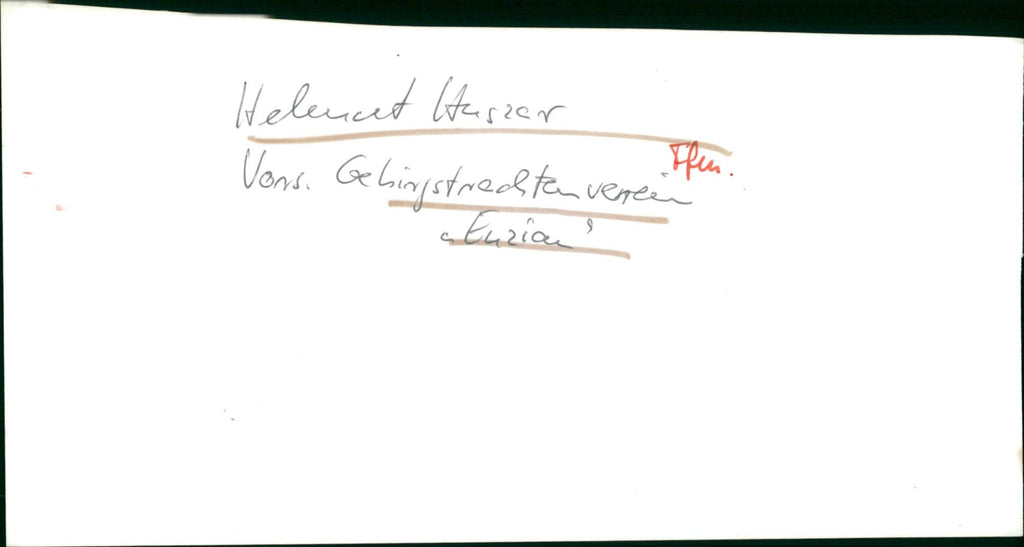 Helmut Huszar
Vors. Gebirgstrachtenverein
„Enzian"